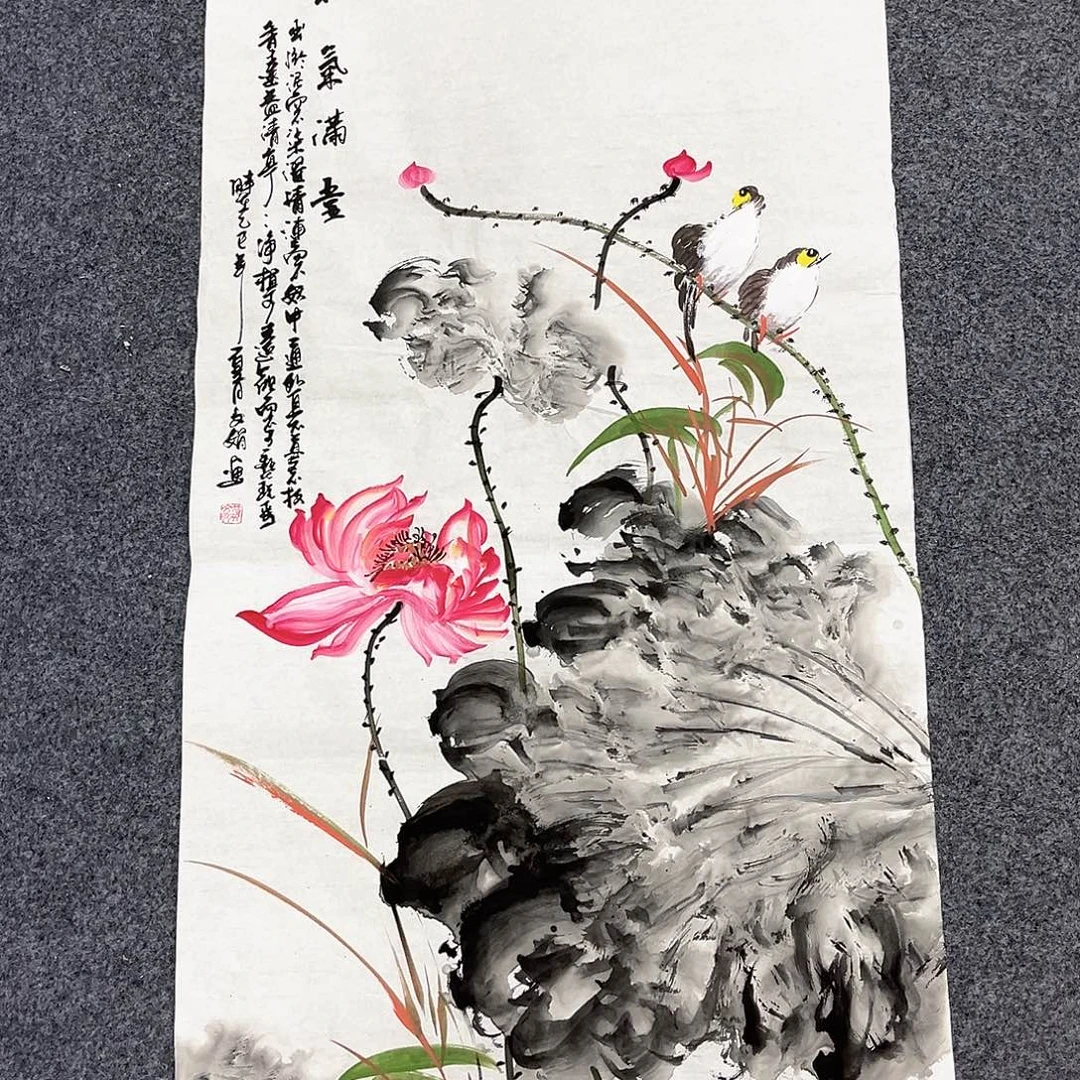 氣滿堂
出淤泥而不染濯清漣而不妖中通外直不蔓不枝
香遠益清亭亭淨植可遠觀而不可褻玩焉
時在乙巳年夏月文娟画